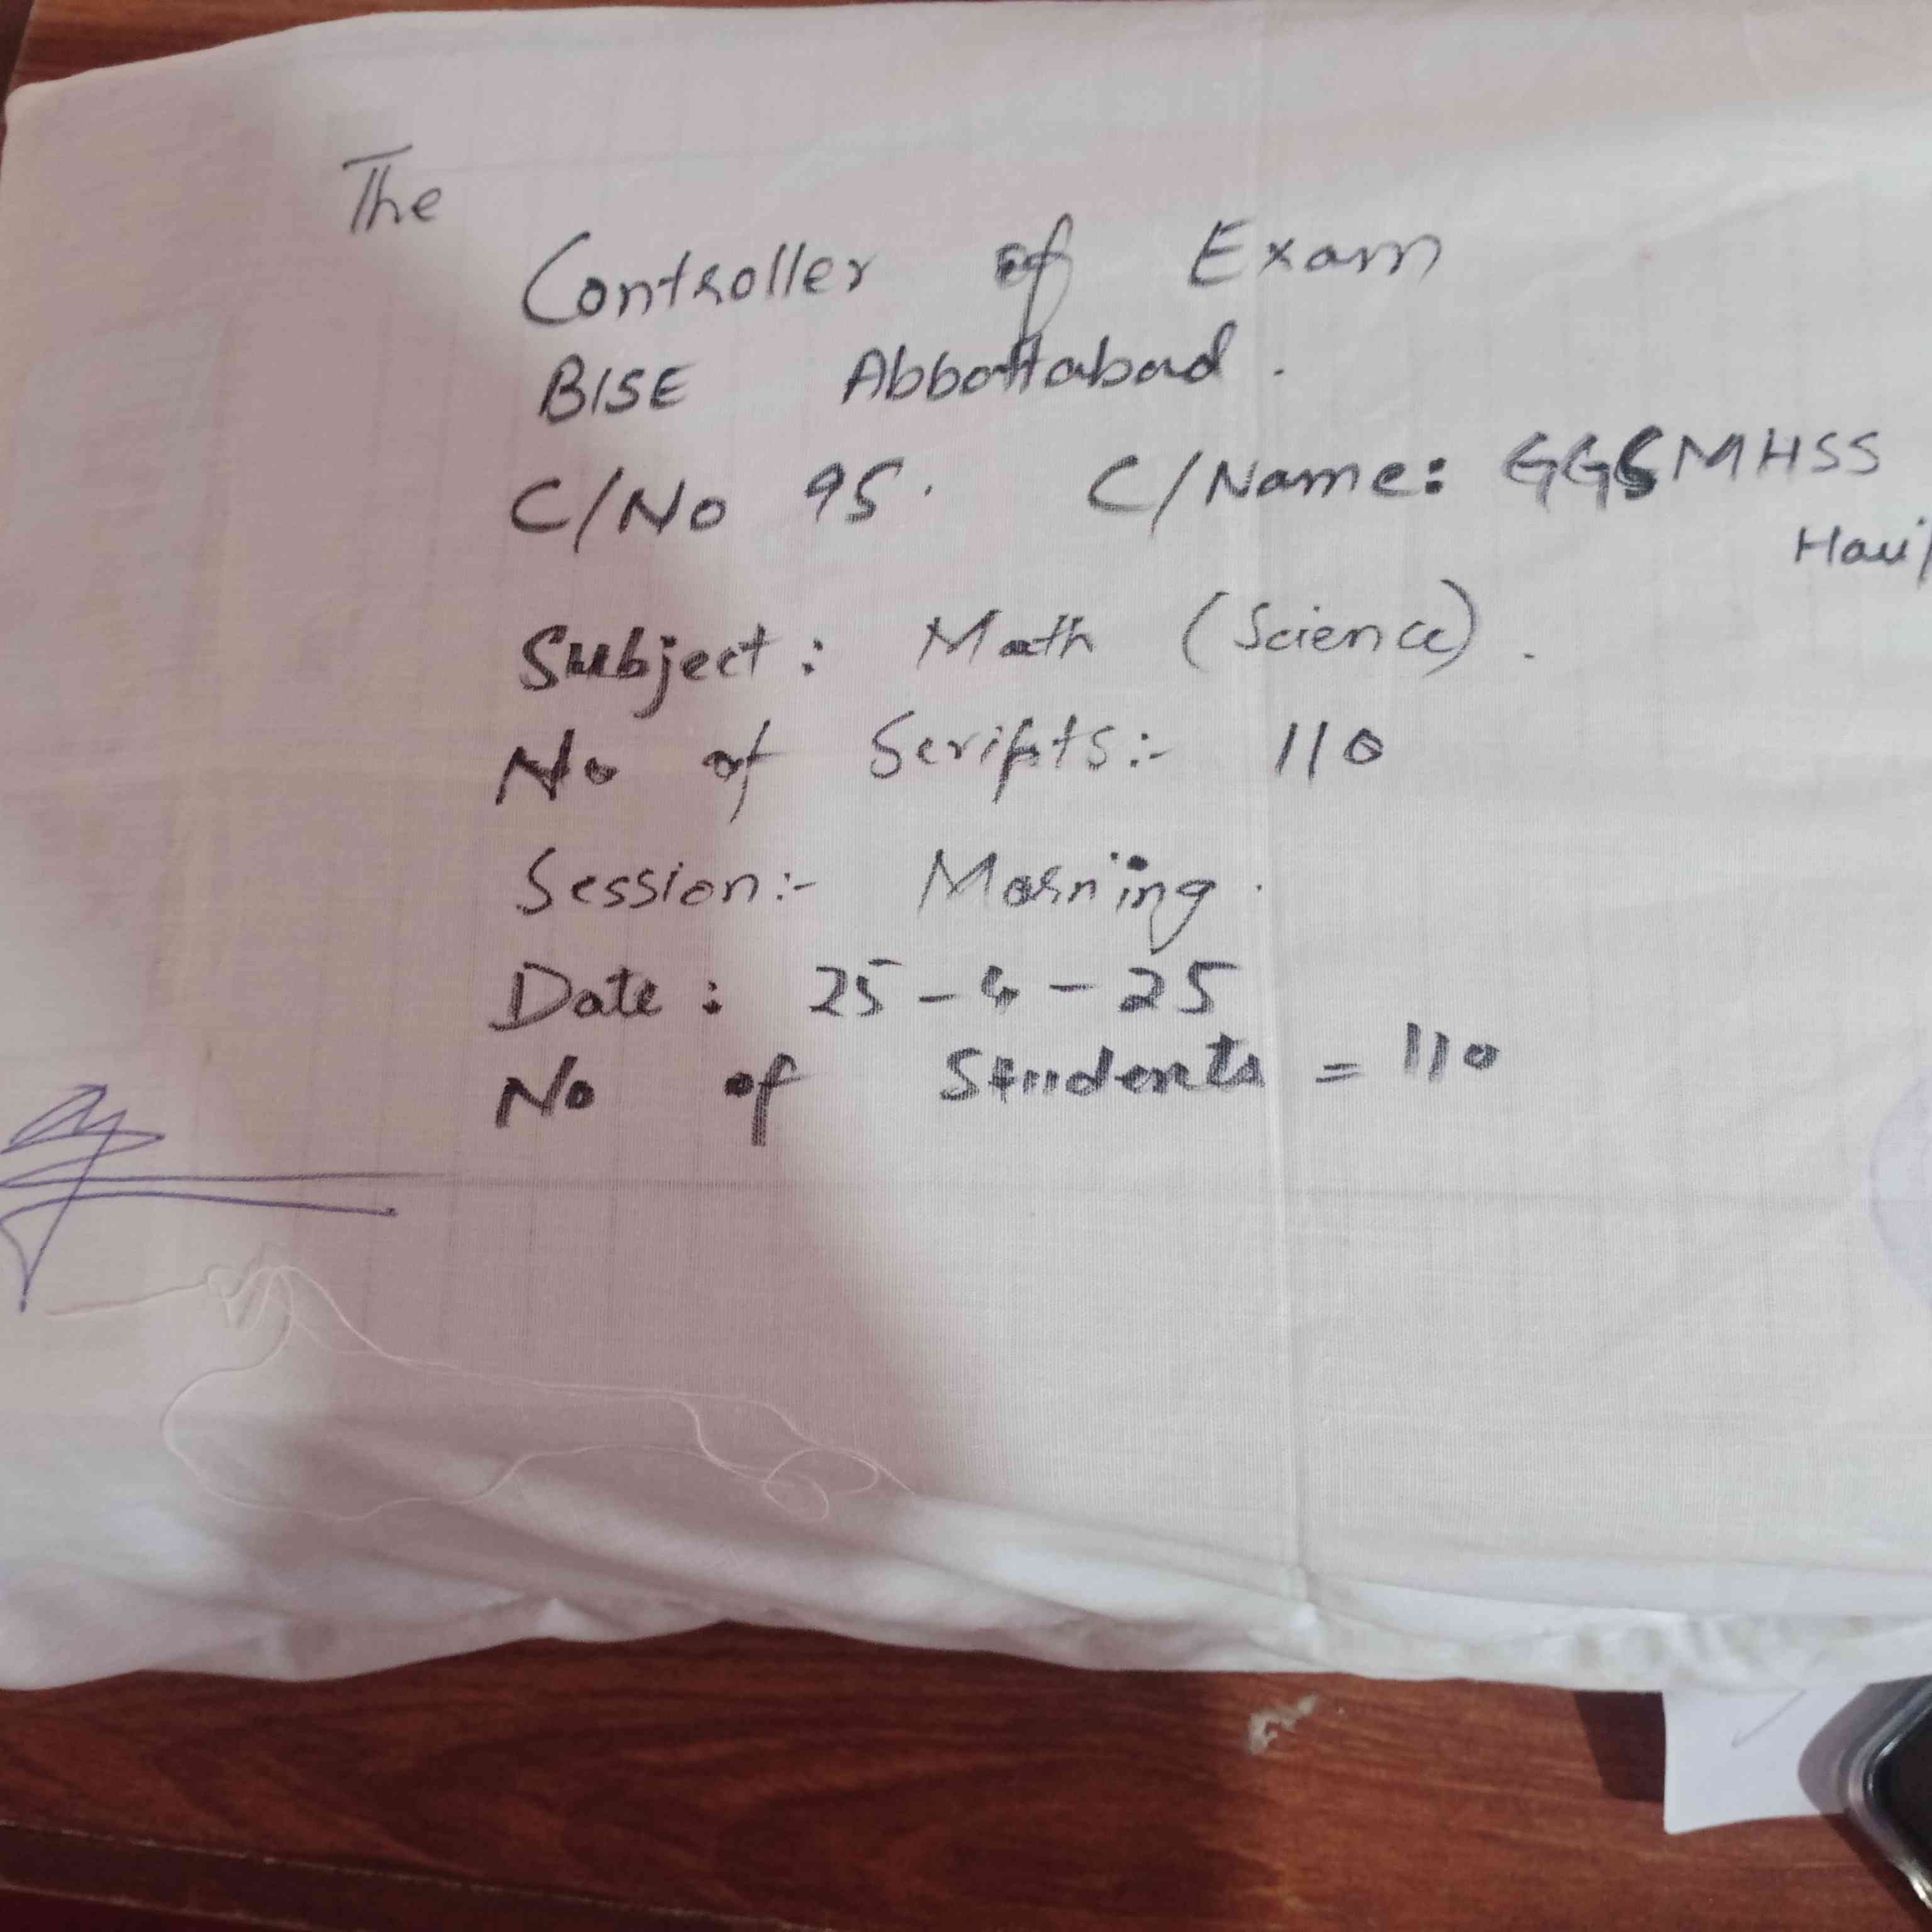 The
Controller of Exam
BISE Abbottabad.
C/No 95. C/Name: GGSMHSS
Subject: Math (Science).
No of Scripts:- 110
Session:- Morning.
Date: 25-4-25
No of Students = 110